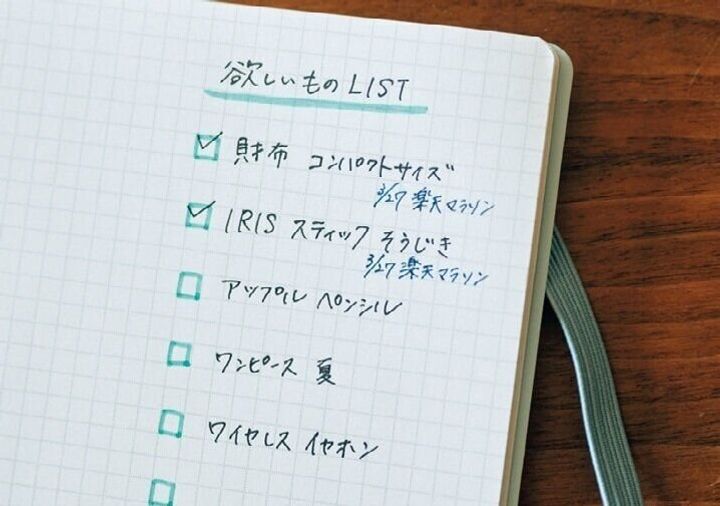 欲しいものLIST
財布 コンパクトサイズ
3/27 楽天マラソン
IRIS スティック そうじき
3/27 楽天マラソン
アップル ペンシル
ワンピース 夏
ワイヤレス イヤホン